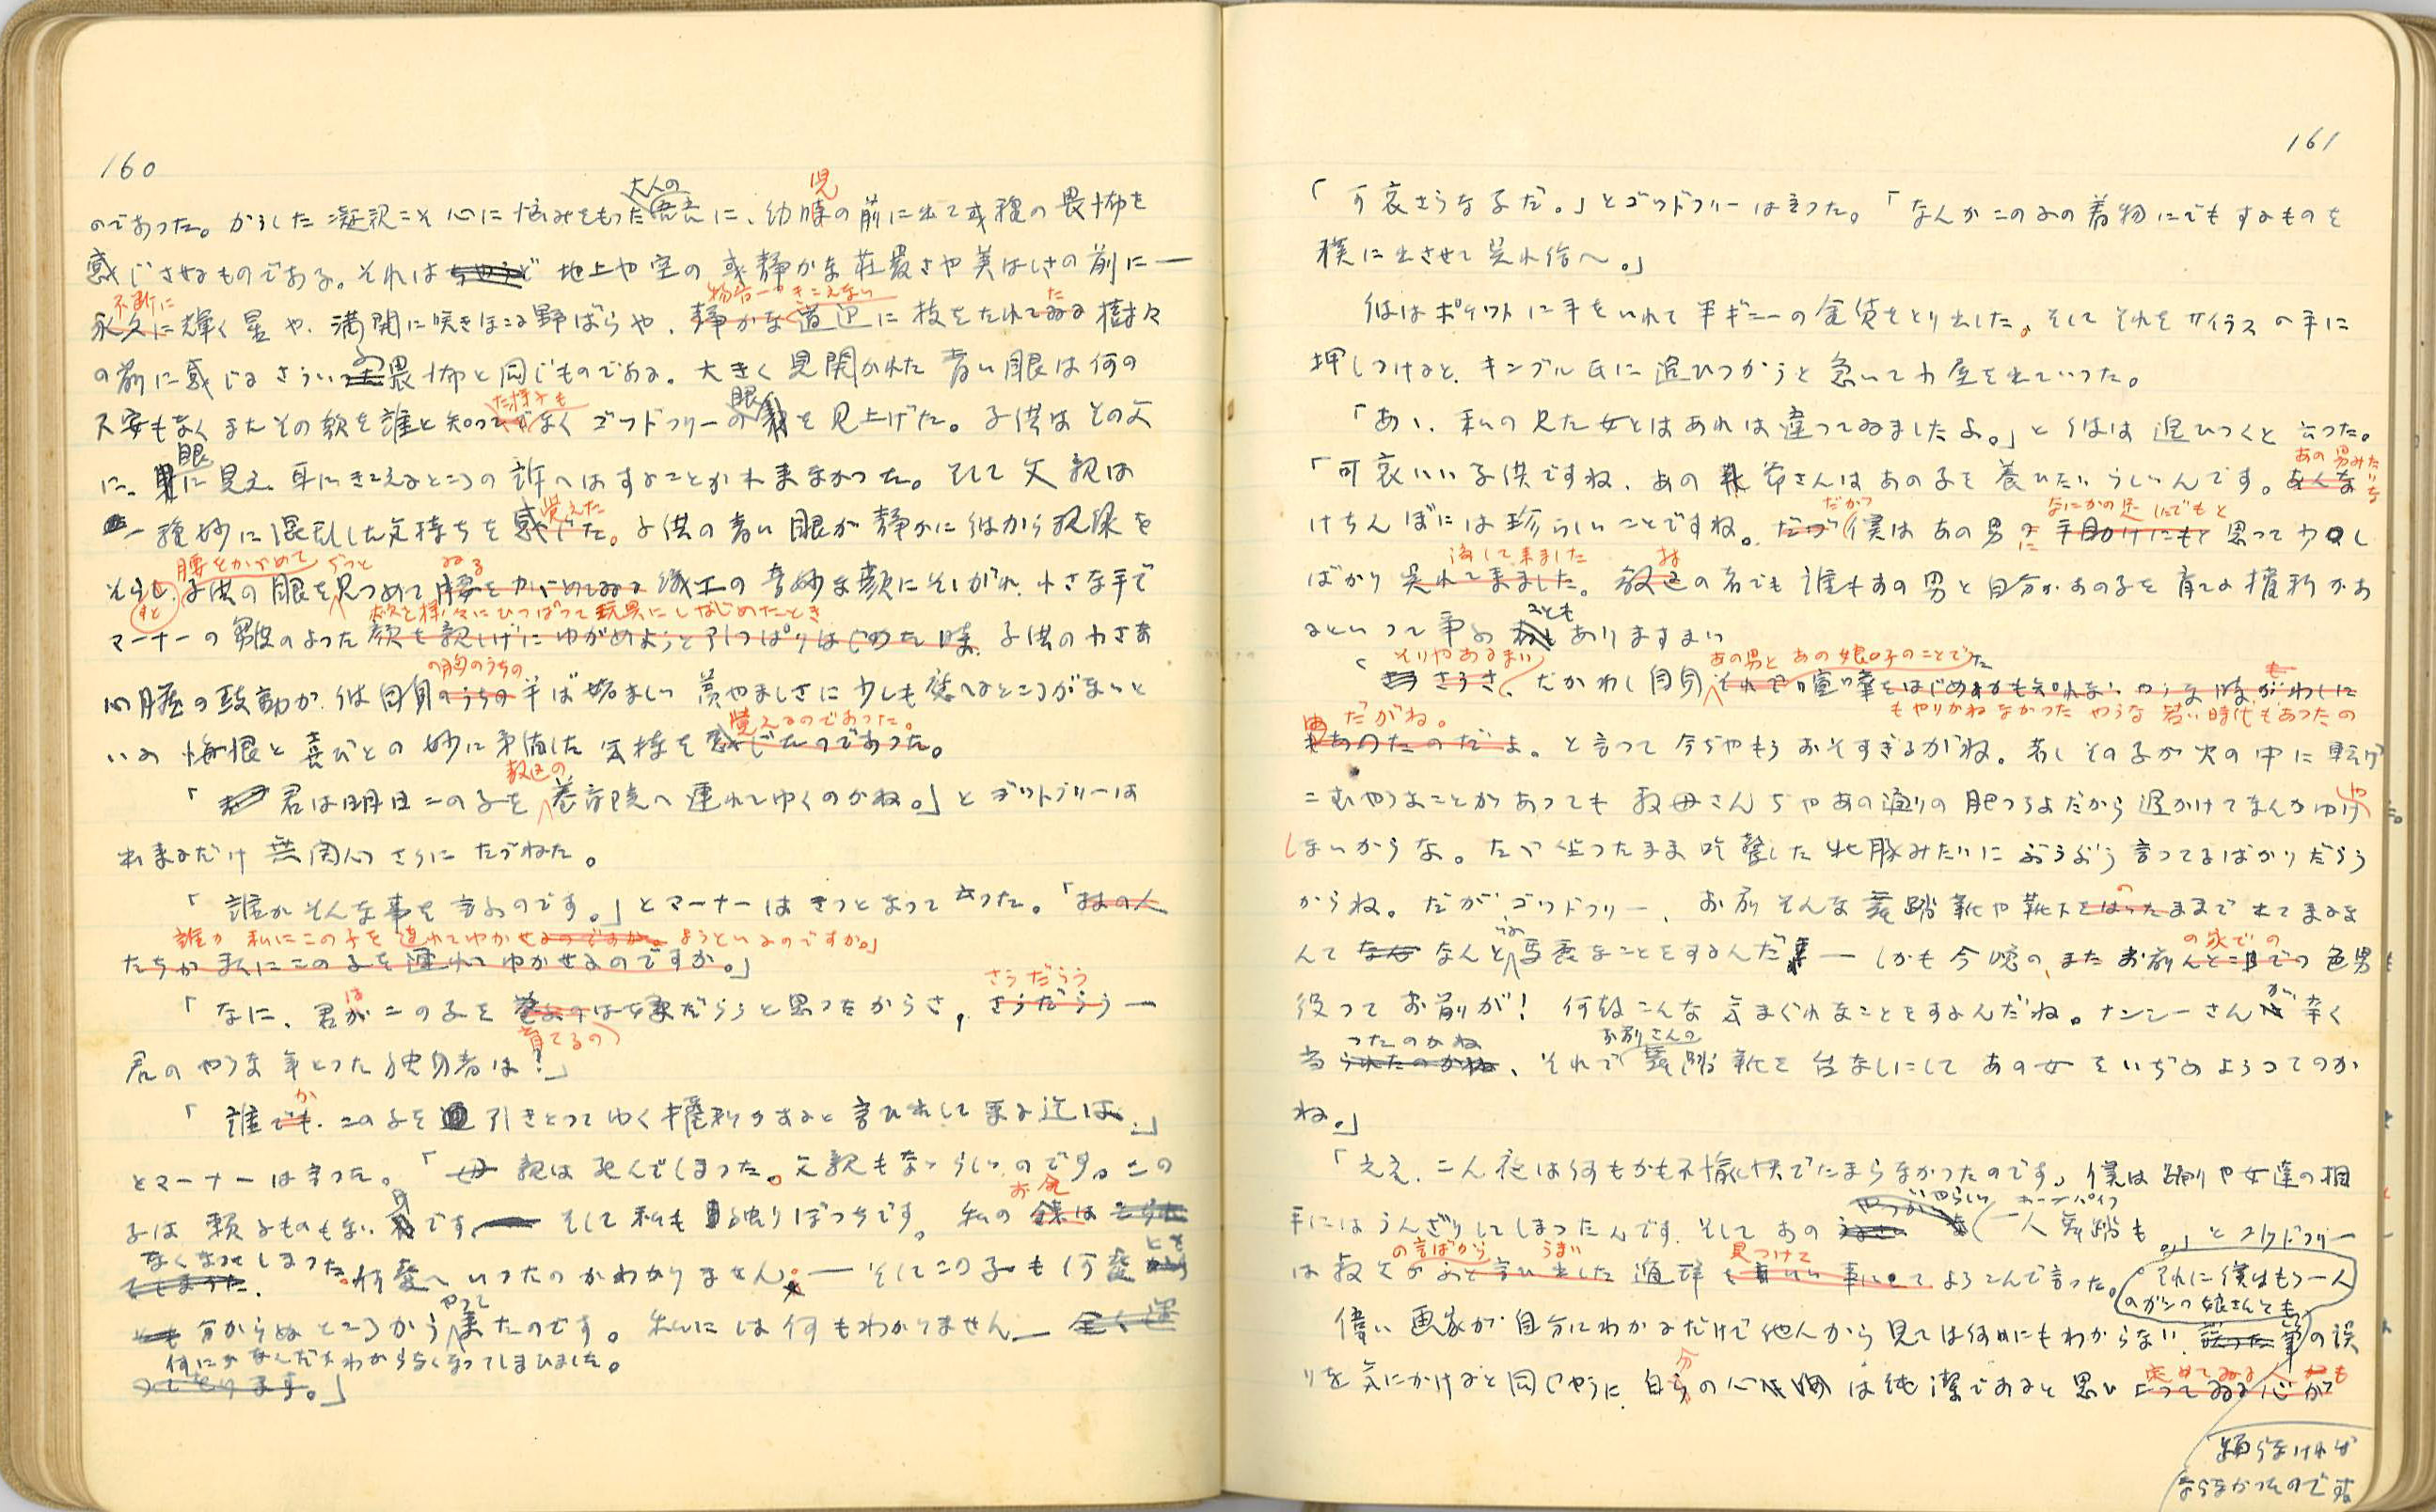 160
大人の 児
のであつた。かうした凝視こそ心に悩みをもつた吾に、幼の前に出て或種の畏怖を
感じさせるものである。それはちやうど地上や空の或静かな荘厳さや美はしさの前に―
不断に 物音一つきこえない た
永久に輝く星や、満開に咲きほこる野ばらや、静かな道辺に枝をたれてゐる樹々
の前に感じるさういふ畏怖と同じものである。大きく見開かれた青い眼は何の
た様子も 眼
不安もなくまたその顔を誰と知つてでなくゴッドフリーのを見上げた。子供はその父
眼
に、に見え、耳にきこえるところの訴へはすることが出来なかつた。そして父親は
覚えた
一種妙に混乱した気持ちを感じた。子供の青い眼が静かに彼から視線を
腰をかがめて ぢつと ゐる
そらすと、子供の眼を見つめて腰をかがめてゐる織工の奇妙な顔にそゝがれ、小さな手で
頬を様々にひつぱつて玩具にしはじめたとき
マーナーの皺のよつた顔を親しげにゆがめようと引つぱりはじめた時、子供の小さな
の胸のうちの
心臓の鼓動が、彼自身のうちの半ば妬ましい羨やましさに少しも応へるところがないと
覚えるのであつた。
いふ悔恨と喜びとの妙に混淆した気持を感じたのであつた。
教区の
「君は明日この子を養育院へ連れてゆくのかね。」とゴッドフリーは
出来るだけ無関心さうにたづねた。
「誰がそんな事を言ふのです。」とマーナーはきつとなつて云つた。「村の人
誰か私にこの子を連れてゆかせるのですか。ようといふのですか。」
たちが私にこの子を連れてゆかせるのですか。」
は さうだらう
「なに、君がこの子を養ふのは嫌だらうと思つたからさ、さうだらう―
育てるの
君のやうな年とつた独身者は?」
か
「誰でも、この子を引きとつてゆく権利があると言ひ出して来る迄は。」
とマーナーは言つた。「母親は死んでしまつた。父親もないらしいのです。この
お金
子は頼るものもない身です そして私も独りぼつちです。私の錢は
なくなつてしまつた。何処へいつたのかわかりません。―そしてこの子も何処
やつて
分からぬところから来たのです。私には何もわかりません― 全く迷
何にがなんだかわからなくなつてしまひました。
つてをります。」
161
「可哀さうな子だ。」とゴッドフリーは言つた。「なんかこの子の着物にでもするものを
僕に出させて呉れ給へ。」
彼はポケットに手をいれて半ギニーの金貨をとり出した。そしてそれをサイラスの手に
押しつけると、キンブル氏に追ひつかうと急いで小屋を出ていつた。
「あゝ、私の見た女とはあれは違つてゐましたよ。」と彼は追ひつくと云つた。
あの男みたいな
「可哀いい子供ですね、あの爺さんはあの子を養ひたいらしいんです。あんな
だが なにかの足しにでもと
けちんぼには珍らしいことですね。だが僕はあの男に手助けにもと思つて少し
渡して来ました お
ばかり呉れて来ました。教区の者でも誰もあの男と自分があの子を育てる権利があ
ことも
るといつて争ふありますまい
そりやあるまい あの男とあの娘の子のことで
「さうさ、だがわし自身それで喧嘩をはじめるかも知れないやうな時がわしに
もやりかねなかつたやうな若い時代もあつたの
だがね。
もあつたのだよ。と言つて今ぢやもうおそすぎるがね。若しその子が火の中に転げ
こむやうなことがあつても叔母さんぢやあの通りの肥つちよだから追かけてなんかゆけや
しないからな。たゞ坐つたまま吃驚した牝豚みたいにぶうぶう言つてるばかりだらう
の
からね。だがゴッドフリー、お前そんな舞踏靴や靴下をはいたままで出てまゐるな
の家での
んてなんて馬鹿なことをするんだ ―しかも今晩の、またお前んとこでの色男
役つてお前が! 何故こんな気まぐれなことをするんだね。ナンシーさんが辛く
つたのかね お前さんの
当られたのかね、それで舞踏靴を台なしにしてあの女をいぢめようつてのか
ね。」
「ええ、こん夜は何もかも不愉快でたまらなかつたのです。僕は踊りや女達の相
いやらしい ホーンパイプ
手にはうんざりしてしまつたんです、そしてあの 一人舞踏も。」とゴッドフリー
の言ばから うまい 見つけて
は叔父がふと言ひ出した遁辞を事にしてよろこんで言つた。
それに僕はもう一人
のガンの娘さんとも
偉い画家が自分にわかるだけで他人から見ては何ともわからない 筆の誤
分 定めてゐる人も
りを気にかけると同じやうに、自らの心は純潔であると思ひよつてゐる心が
踊らなければ
ならなかつたのです